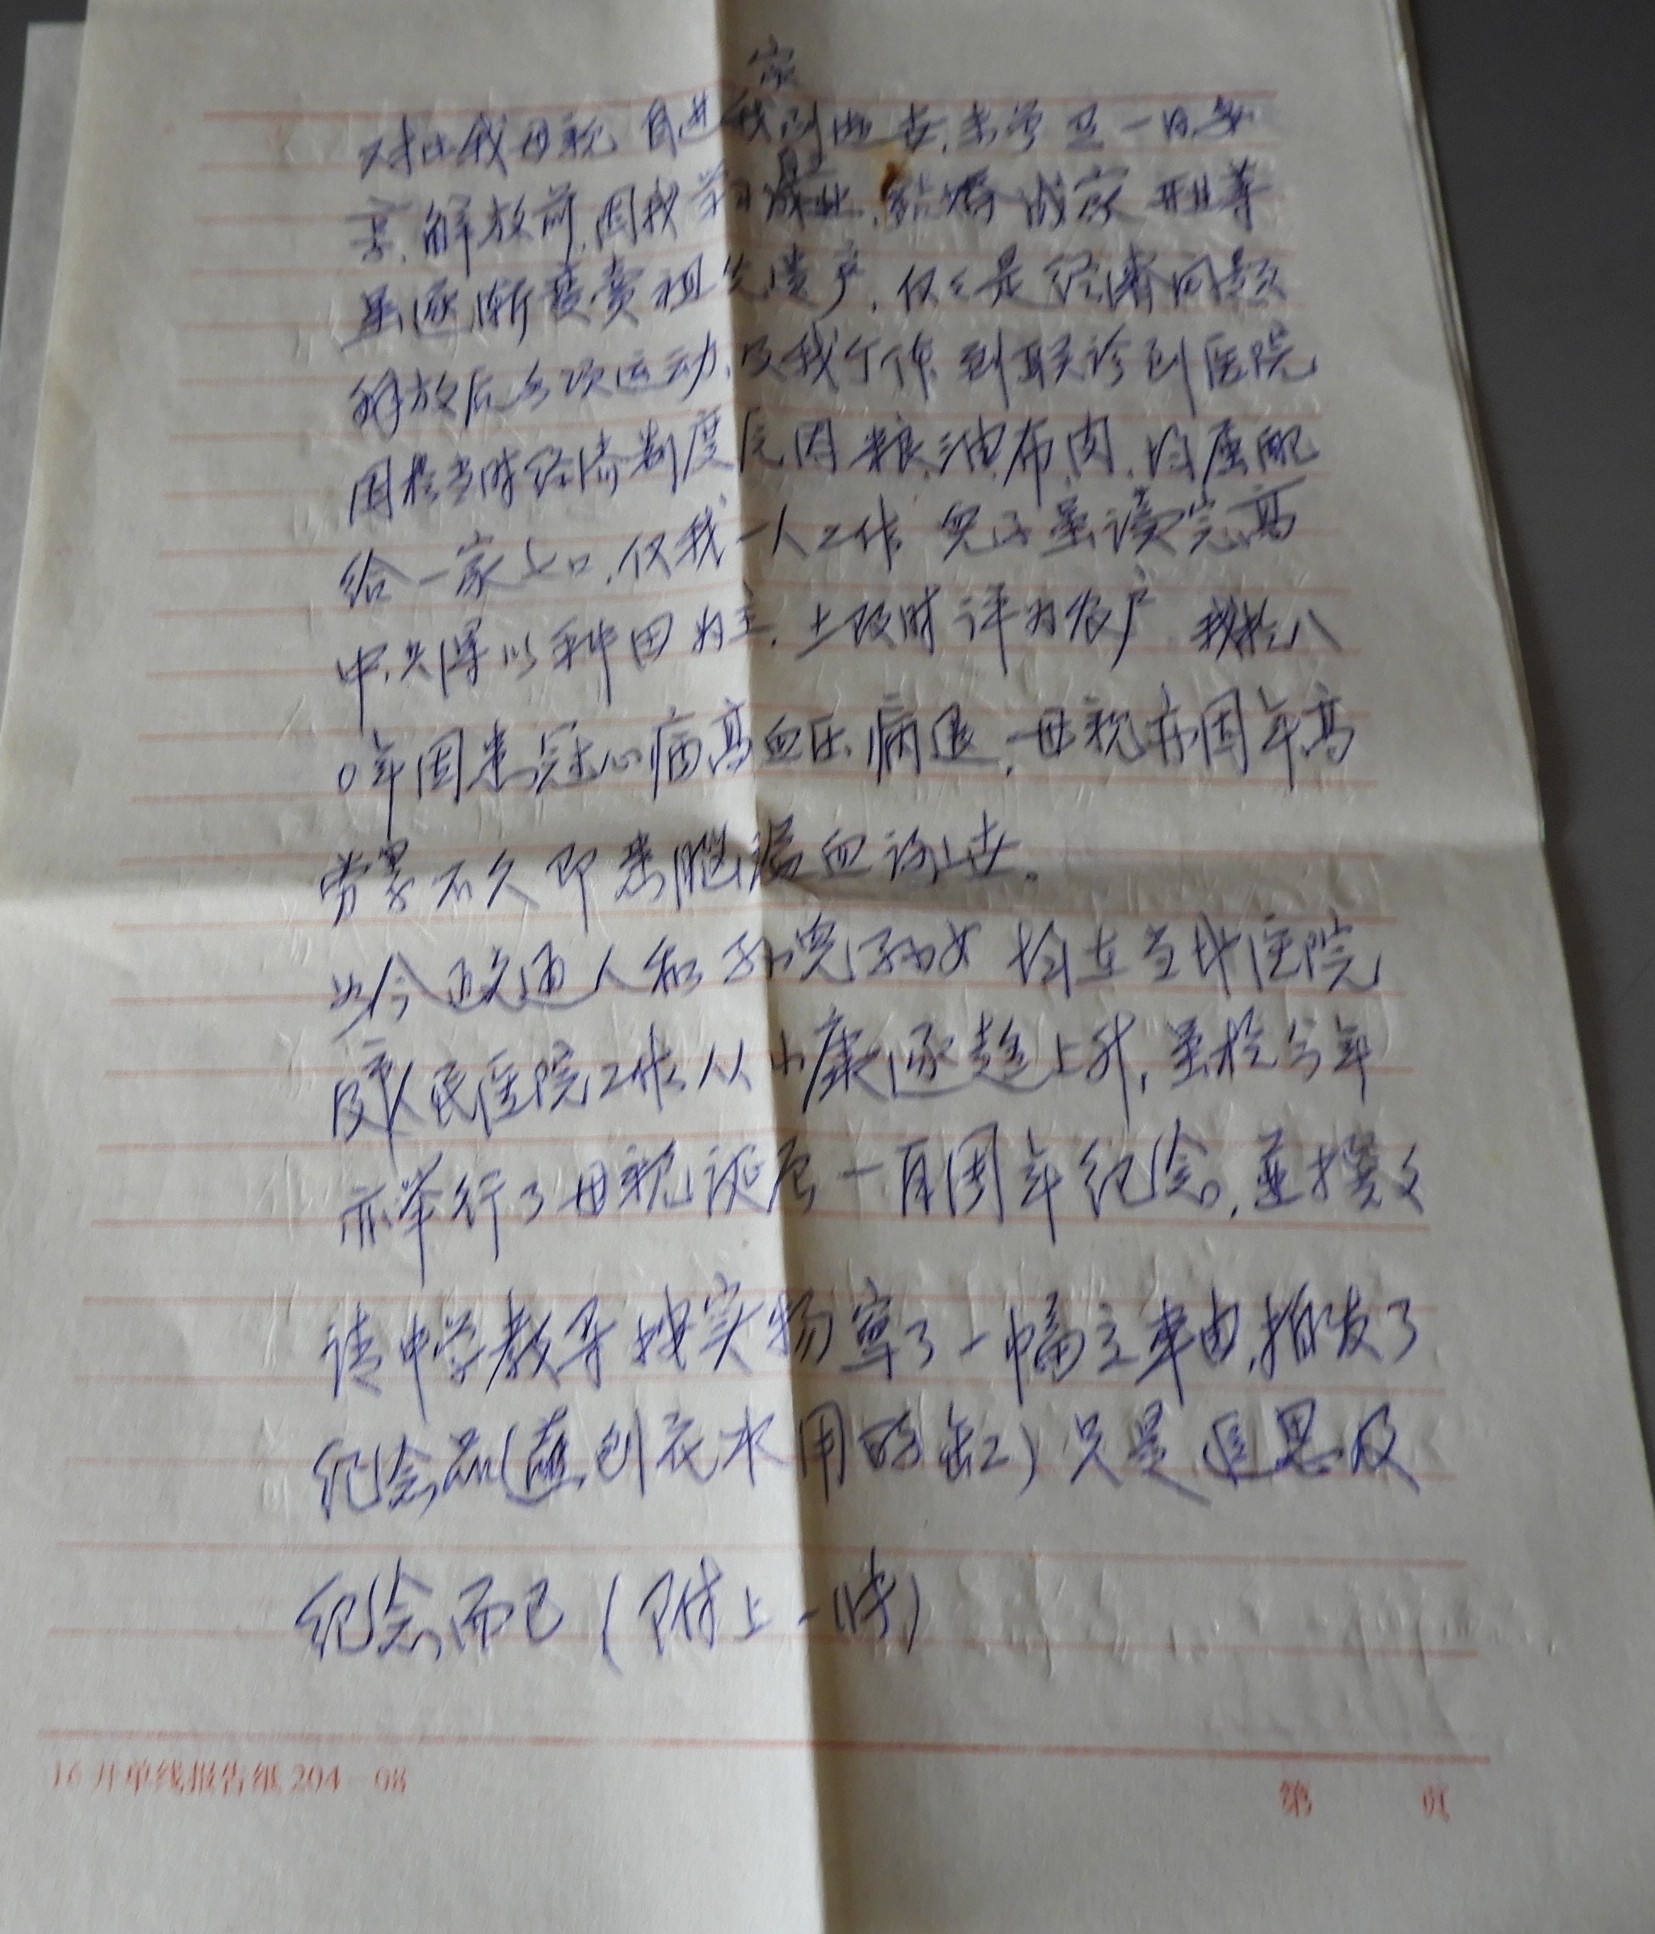 家
对比我母亲自进我到逝世,未曾区一日
景.解放前,因我学习 业.结婚成家 开业等
虽逐渐变卖祖先遗产,仅仅是经济问题
解放后各项运动,及我个体到联诊到医院
因于当时经济制度后因粮油布肉,均属配
给一家七口,仅我一人工作 児子虽读完高
中,只得以种田为主,土改时评为农户 我于八
0年因患冠心病高血压病退,母亲亦因年高
劳累不久即患脑溢血谢世。
如今政通人和 孙児孙女 均在当地医院
及市人民医院工作 从小康逐趋上升,虽于今年
亦举行了母亲诞辰一百周年纪念,並撰文
请中学教导 实物写了一幅立 由,拍发了
纪念品( 刨花水用的缸)只是追思及
纪念而已(附上一 )
16开单线报告纸 204—08
第 页